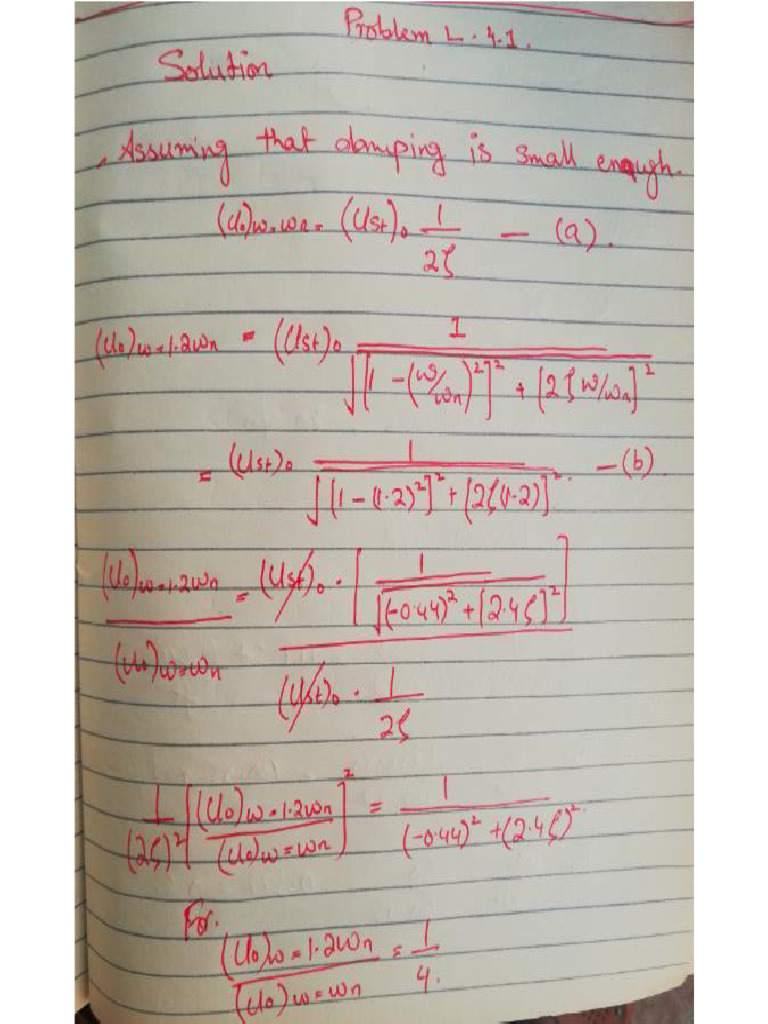 Problem L.4.1.
Solution
Assuming that damping is small enough.
(U₀)ω=ωn = (Ust)₀ 1/2ζ — (a).
(U₀)ω=1.2ωn = (Ust)₀ 1/√[1-(ω/ωn)²]² + [2ζ ω/ωn]²
= (Ust)₀ 1/√[1-(1.2)²]² + [2ζ(1.2)]² — (b)
(U₀)ω=1.2ωn/(U₀)ω=ωn = (Ust)₀ · [1/√(-0.44)² + [2.4ζ]²]/(Ust)₀ · 1/2ζ
1/(2ζ)² [(U₀)ω=1.2ωn/(U₀)ω=ωn]² = 1/(-0.44)² + (2.4ζ)²
For.
(U₀)ω=1.2ωn/(U₀)ω=ωn = 1/4.